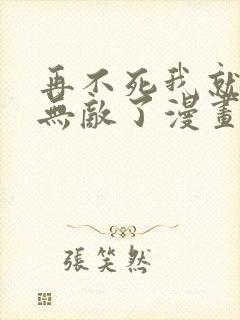 再不死我就
無敵了漫畫
張笑然